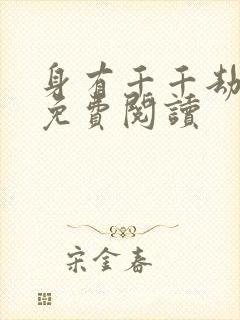 身有千千劫
免費閱讀
宋金春